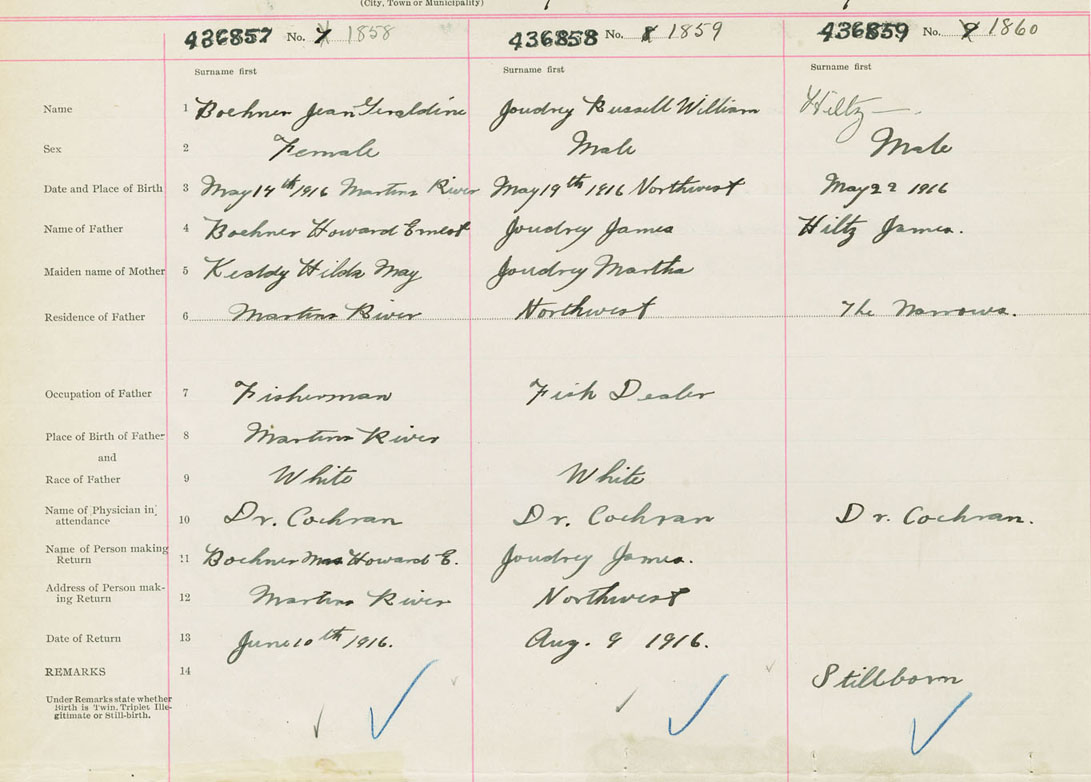 (City, Town or Municipality)
436857 No. 1858 436858 No. 8 1859 436859 No. 9 1860
Surname first Surname first Surname first
Name 1 Boehner Jean Geraldine Joudrey Russell William Hiltz —.
Sex 2 Female Male Male
Date and Place of Birth 3 May 14th 1916 Martins River May 19th 1916 Northwest May 22 1916
Name of Father 4 Boehner Howard Ernest Joudrey James Hiltz James.
Maiden name of Mother 5 Keddy Hilda May Joudrey Martha
Residence of Father 6 Martins River Northwest The Narrows.
Occupation of Father 7 Fisherman Fish Dealer
Place of Birth of Father 8 Martins River
and
Race of Father 9 White White
Name of Physician in
attendance 10 Dr. Cochran Dr. Cochran Dr. Cochran.
Name of Person making
Return 11 Boehner Mrs Howard E. Joudrey James.
Address of Person mak-
ing Return 12 Martins River Northwest
Date of Return 13 June 10th 1916. Aug. 9 1916.
REMARKS 14 Stillborn
Under Remarks state whether
Birth is Twin, Triplet Ille-
gitimate or Still-birth.